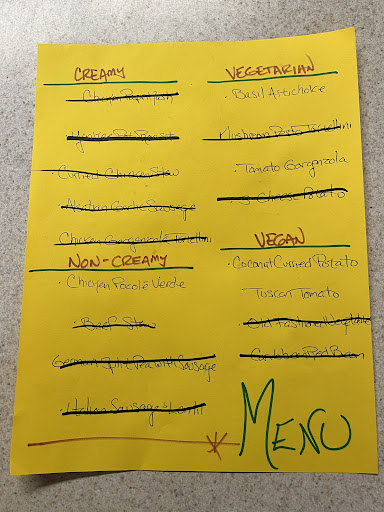 CREAMY
Chicken
Curried Chicken Stew
Sausage
Chicken Gorgonzola Tortellini
NON-CREAMY
• Chicken Pooole Verde
Beef Stew
German Split Pea with Sausage
• Italian Sausage & Lentil
VEGETARIAN
• Basil Artichoke
Mushroom Tortellini
• Tomato Gorgonzola
3-Cheese Potato
VEGAN
• Coconut Curried Potato
Tuscan Tomato
Old Fashioned Vegetable
Caribbean Red Bean
MENU